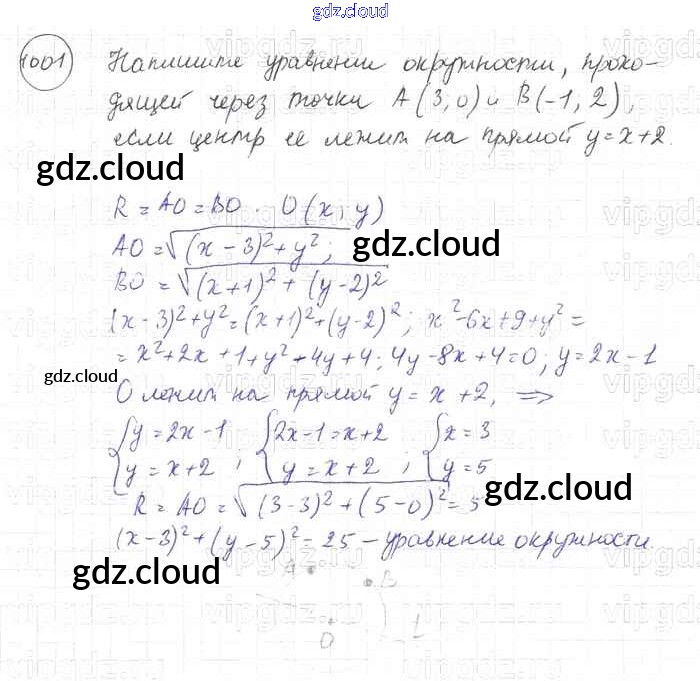 gdz.cloud
1001 Напишите уравнении окружности, прохо-
дящей через точки A(3;0) и B(-1;2),
если центр ее лежит на прямой y=x+2.
gdz.cloud
R = AO = BO. O(x; y)
AO = √(x-3)²+y²;
gdz.cloud
BO = √(x+1)² + (y-2)²
(x-3)²+y²=(x+1)²+(y-2)²; x²-6x+9+y²=
= x²+2x+1+y²+4y+4; 4y-8x+4=0; y=2x-1
gdz.cloud
O лежит на прямой y=x+2, ⇒
{y=2x-1 {2x-1=x+2 {x=3
{y=x+2 ; {y=x+2 ; {y=5
gdz.cloud
R = AO = √(3-3)²+(5-0)² = 5
(x-3)²+(y-5)²=25 – уравнение окружности.
gdz.cloud
gdz.cloud
A B
O 1